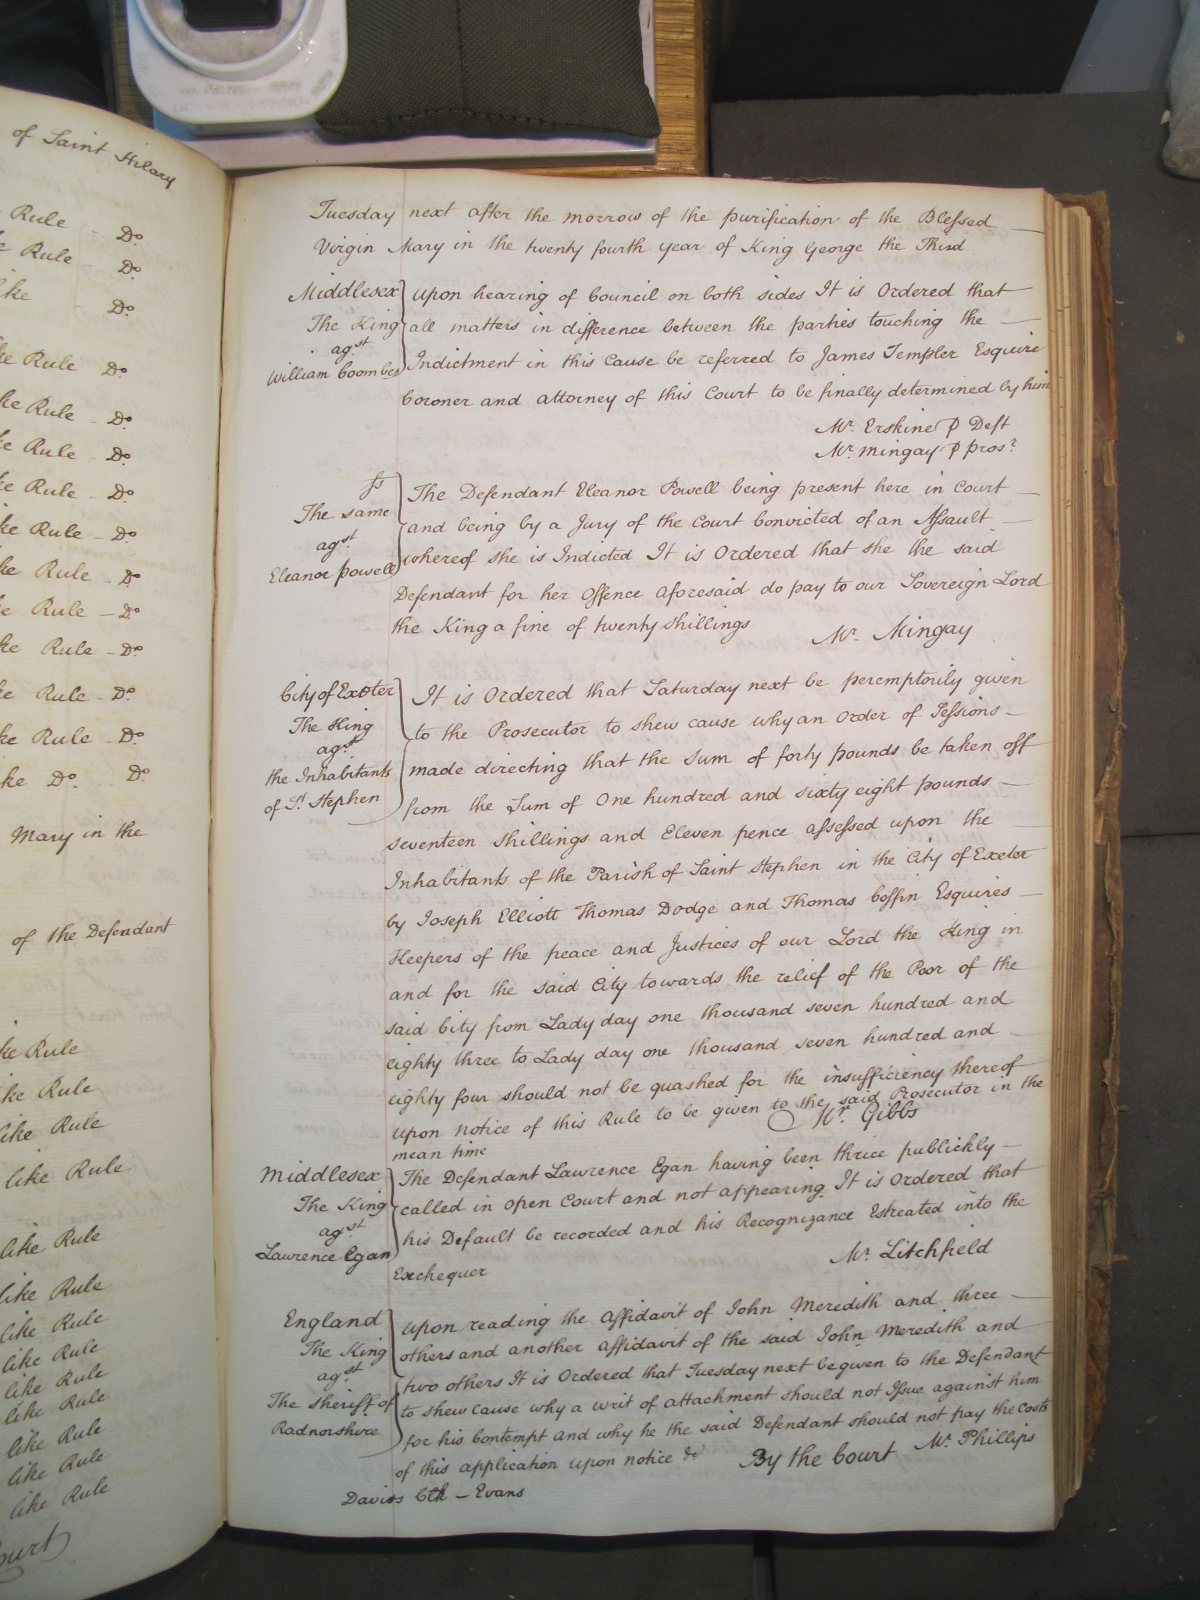 of Saint Hilary
Rule - Do
Rule Do
like Do
Rule Do
like Rule - Do
Rule Do
Rule - Do
Rule - Do
Rule Do
Rule - Do
Rule - Do
Rule - Do
like Rule Do
like Do. Do
Mary in the
of the Defendant
like Rule
like Rule
like Rule
like Rule
like Rule
like Rule
like Rule
like Rule
like Rule
like Rule
like Rule
like Rule
like Rule
Court
Tuesday next after the morrow of the purification of the Blessed
Virgin Mary in the twenty fourth year of King George the Third
Middlesex
The King
agst
William Coombes
Upon hearing of Council on both sides It is Ordered that
all matters in difference between the parties touching the
Indictment in this Cause be referred to James Templer Esquire
Coroner and attorney of this Court to be finally determined by him
Mr. Erskine p Deft
Mr. Mingay p Prosr.
ss
The same
agst
Eleanor Powell
The Defendant Eleanor Powell being present here in Court
and being by a Jury of the Court Convicted of an Assault
whereof she is Indicted It is Ordered that she the said
Defendant for her Offence aforesaid do pay to our Sovereign Lord
the King a fine of twenty shillings
Mr. Mingay
City of Exeter
The King
agst
the Inhabitants
of St. Stephen
It is Ordered that Saturday next be peremptorily given
to the Prosecutor to shew cause why an Order of Sessions
made directing that the Sum of forty pounds be taken off
from the Sum of One hundred and sixty eight pounds
seventeen shillings and Eleven pence assessed upon the
Inhabitants of the Parish of Saint Stephen in the City of Exeter
by Joseph Elliott Thomas Dodge and Thomas Coffin Esquires
Keepers of the peace and Justices of our Lord the King in
and for the said City towards the relief of the Poor of the
said City from Lady day one thousand seven hundred and
eighty three to Lady day one thousand seven hundred and
eighty four should not be quashed for the insufficiency thereof
upon notice of this Rule to be given to the said Prosecutor in the
mean time
Mr. Gibbs
Middlesex
The King
agst
Lawrence Egan
The Defendant Lawrence Egan having been thrice publickly
called in open Court and not appearing It is Ordered that
his Default be recorded and his Recognizance Estreated into the
Exchequer
Mr. Litchfield
England
The King
agst
The Sheriff of
Radnorshire
Upon reading the Affidavit of John Meredith and three
others and another Affidavit of the said John Meredith and
two others It is Ordered that Tuesday next be given to the Defendant
to shew cause why a writ of attachment should not Issue against him
for his Contempt and why he the said Defendant should not pay the Costs
of this application upon notice &c
Mr. Phillips
By the Court
Davies 6th - Evans